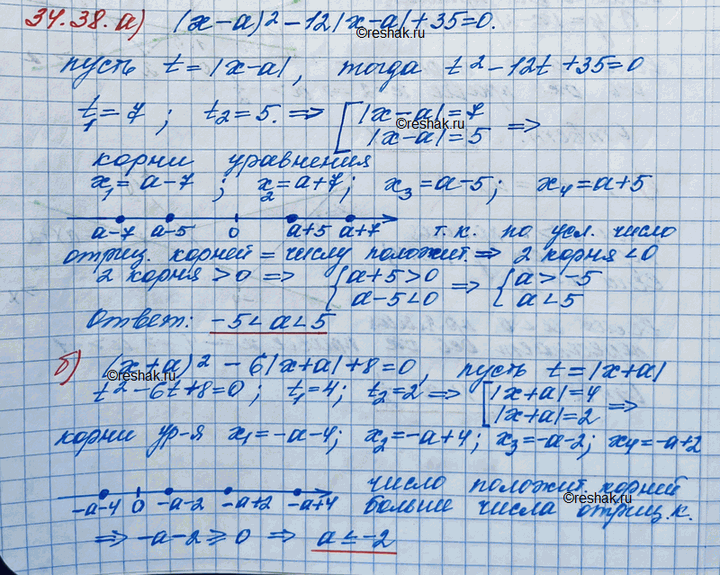 34.38. а) (x-a)² - 12|x-a| + 35 = 0.
reshak.ru
пусть t = |x-a|, тогда t² - 12t + 35 = 0
t₁ = 7 ; t₂ = 5. ⇒ [ |x-a| = 7
|x-a| = 5 ⇒
reshak.ru
корни уравнения
x₁ = a-7 ; x₂ = a+7 ; x₃ = a-5 ; x₄ = a+5
a-7 a-5 0 a+5 a+7 т.к. по усл. число
отриц. корней = числу положит. ⇒ 2 корня < 0
2 корня > 0 ⇒ { a+5 > 0 ⇒ { a > -5
a-5 < 0 a < 5
Ответ: -5 < a < 5
б) (x+a)² - 6|x+a| + 8 = 0, пусть t = |x+a|
reshak.ru
t² - 6t + 8 = 0 ; t₁ = 4 ; t₂ = 2 ⇒ [ |x+a| = 4
|x+a| = 2 ⇒
корни ур-я x₁ = -a-4 ; x₂ = -a+4 ; x₃ = -a-2 ; x₄ = -a+2
число положит. корней
-a-4 0 -a-2 -a+2 -a+4 больше числа отриц. к.
reshak.ru
⇒ -a-2 ⩾ 0 ⇒ a ≤ -2